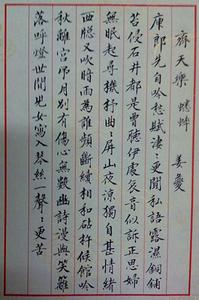 齊天樂 蟋蟀 姜夔
庾郎先自吟愁賦淒々更聞私語露濕銅鋪
苔侵石井都是曾聽伊處哀音似訴正思婦
無眠起尋機杼曲々屏山夜涼獨自甚情緒
西窓又吹暗雨為誰頻斷續相和砧杵候館吟
秋離宮吊月別有傷心無數豳詩漫與笑籬
落呼燈世間兒女寫入琴絲一聲々更苦